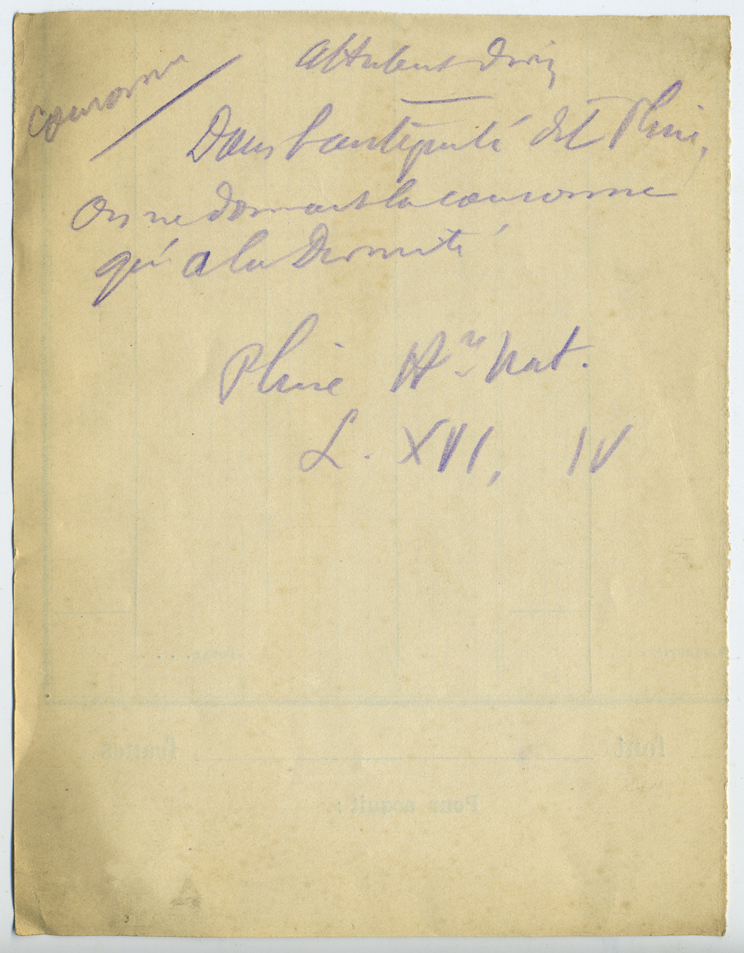 couronne
Attribut divin
Dans l'antiquité dit Pline,
on ne donnait la couronne
qu'à la Divinité
Pline Hre Nat.
L. XVI, IV
font francs
Pour acquit
A